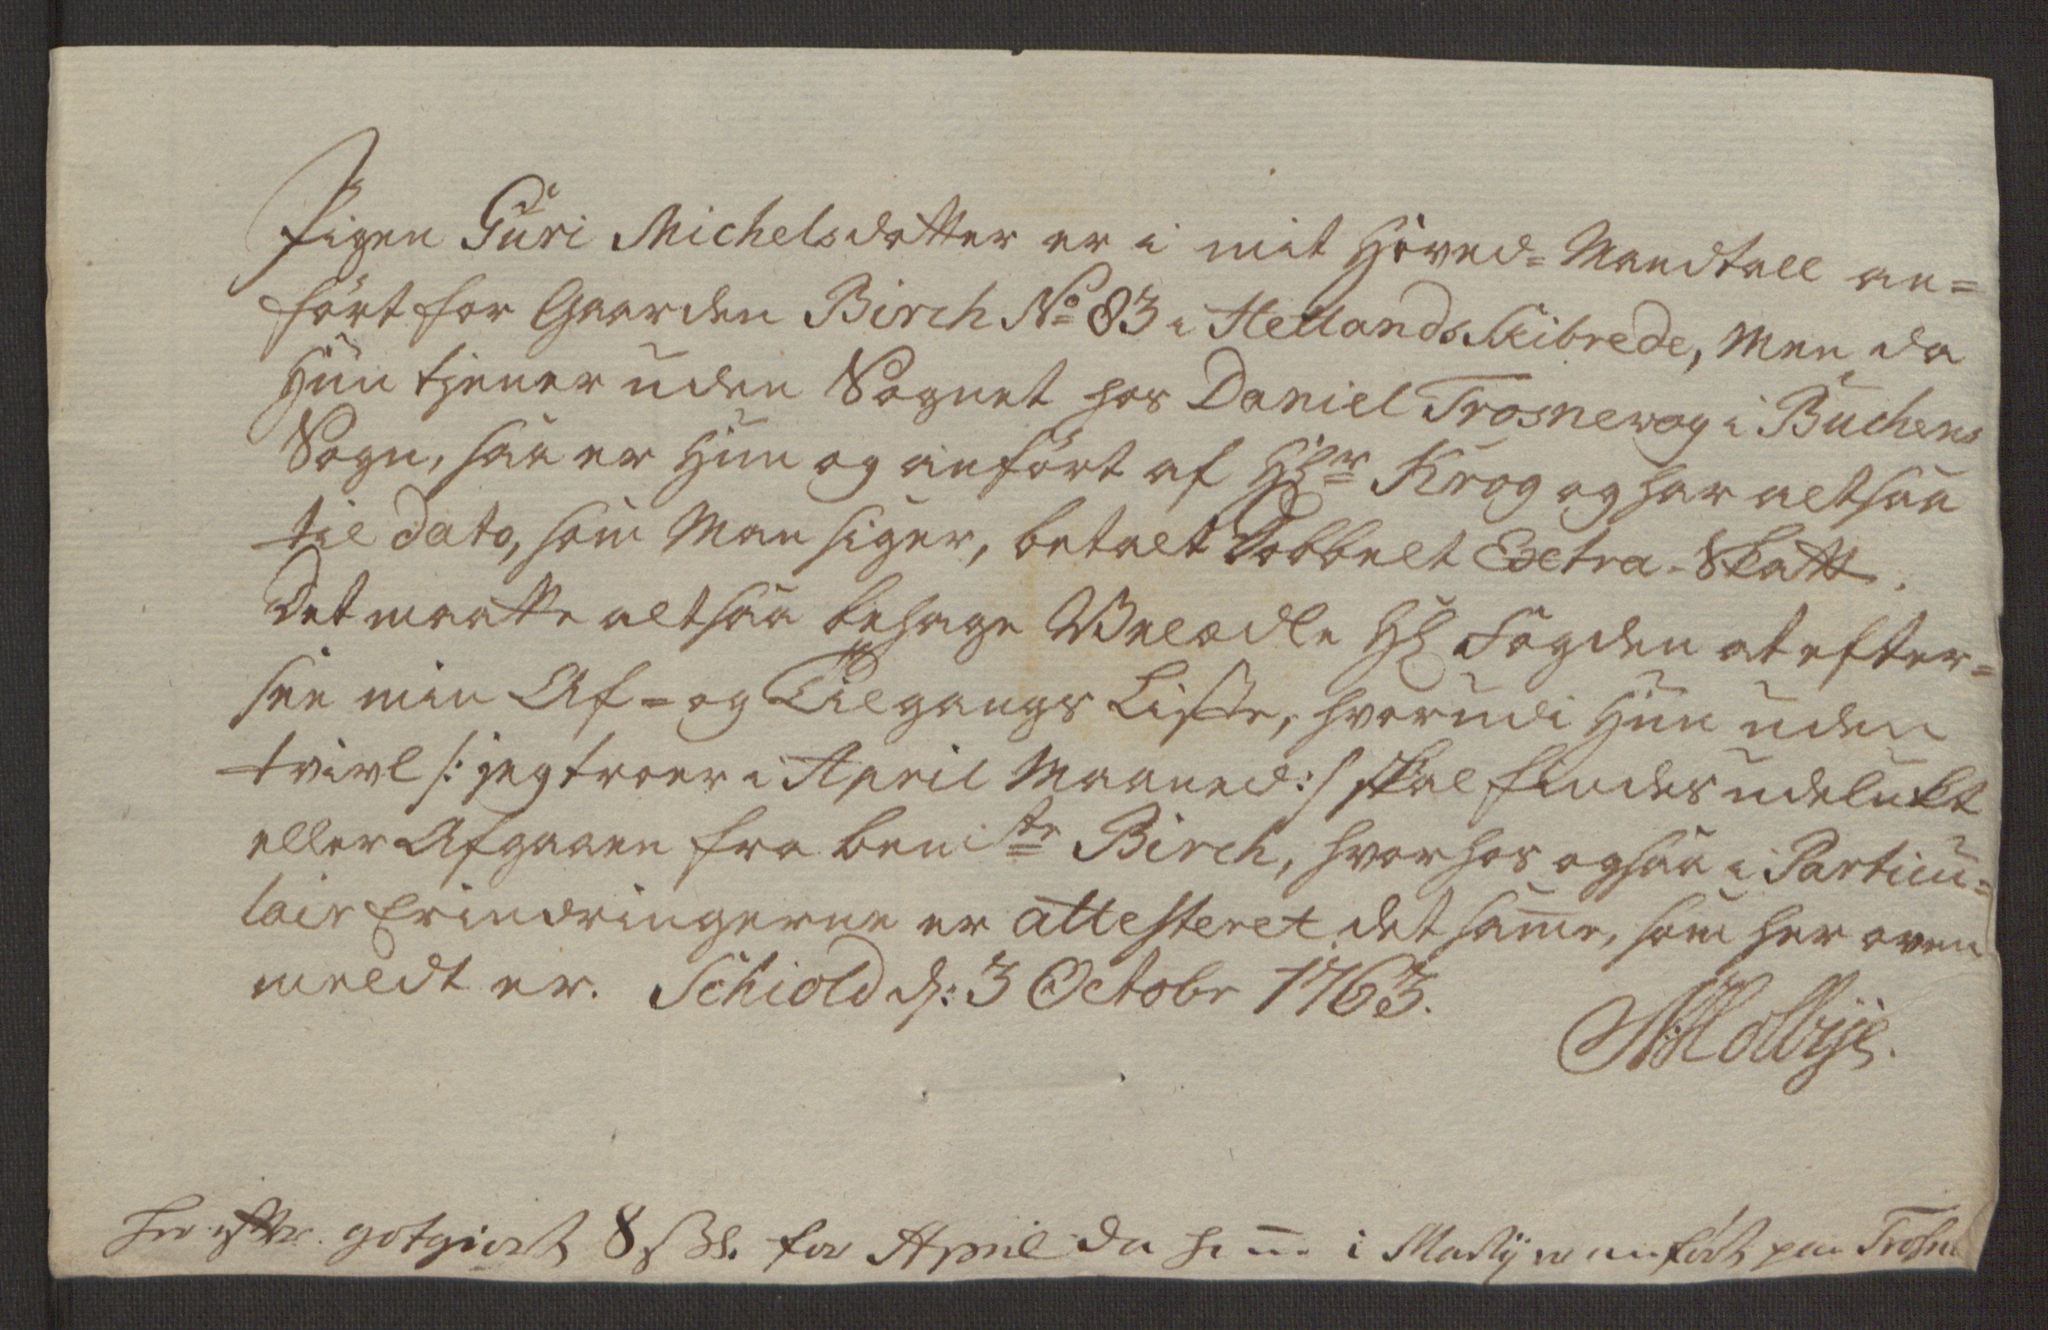 Pigen Guri Michelsdatter er i mit Hoved= Mandtall an=
ført for Gaarden Birch No 83 i Hetlands Skibrede, Men da
Hun tjener uden Sognet hos Daniel Trosnewog i Buchens
Sogn, saa er Hun og anført af Hr Krog og har altsaa
til dato, som Man siger, betalt Dobbelt Extra-Skatt.
Det maatte altsaa behage Velædle Hr Fogden at efter=
see min Af= og Tilgangs Liste, hvorudi Hun uden
tvivl /: jeg troer i April Maaned :/ skal findes udelukt
eller Afgaaen fra bemte Birch, hvorhos ogsaa i Particu=
lair Erindringerne er attesteret det samme, som her oven
meldt er. Schiold d: 3 Octobr 1763.
Holbye.
her efter gotgiort 8 s. for April da hun i Mastr er anført paa Trosne